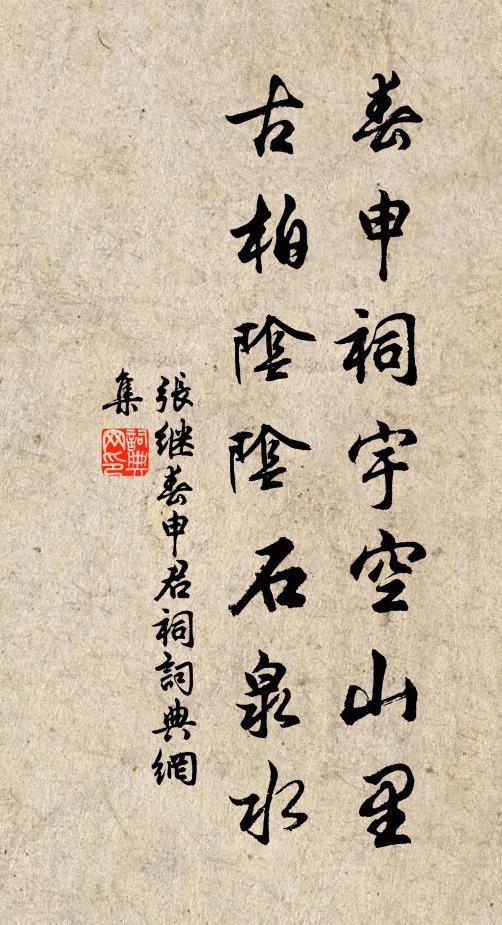 春申祠宇空山里
古柏陰陰石泉水
張继春申君祠詞典網
集
詞典網印